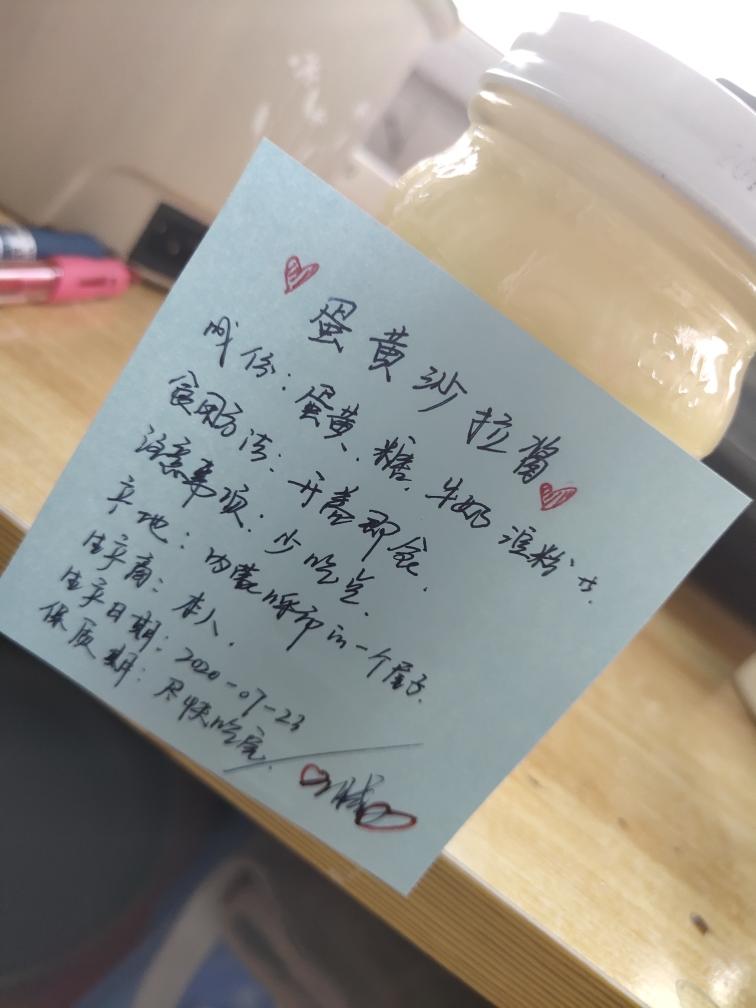 蛋黄沙拉酱
成份：蛋黄、糖、牛奶 淀粉
食用方法：开盖即食.
注意事项：少吃点.
产地：内蒙 的一个屋子.
生产商：本人.
生产日期：2020-07-23
保质期：尽快吃完.